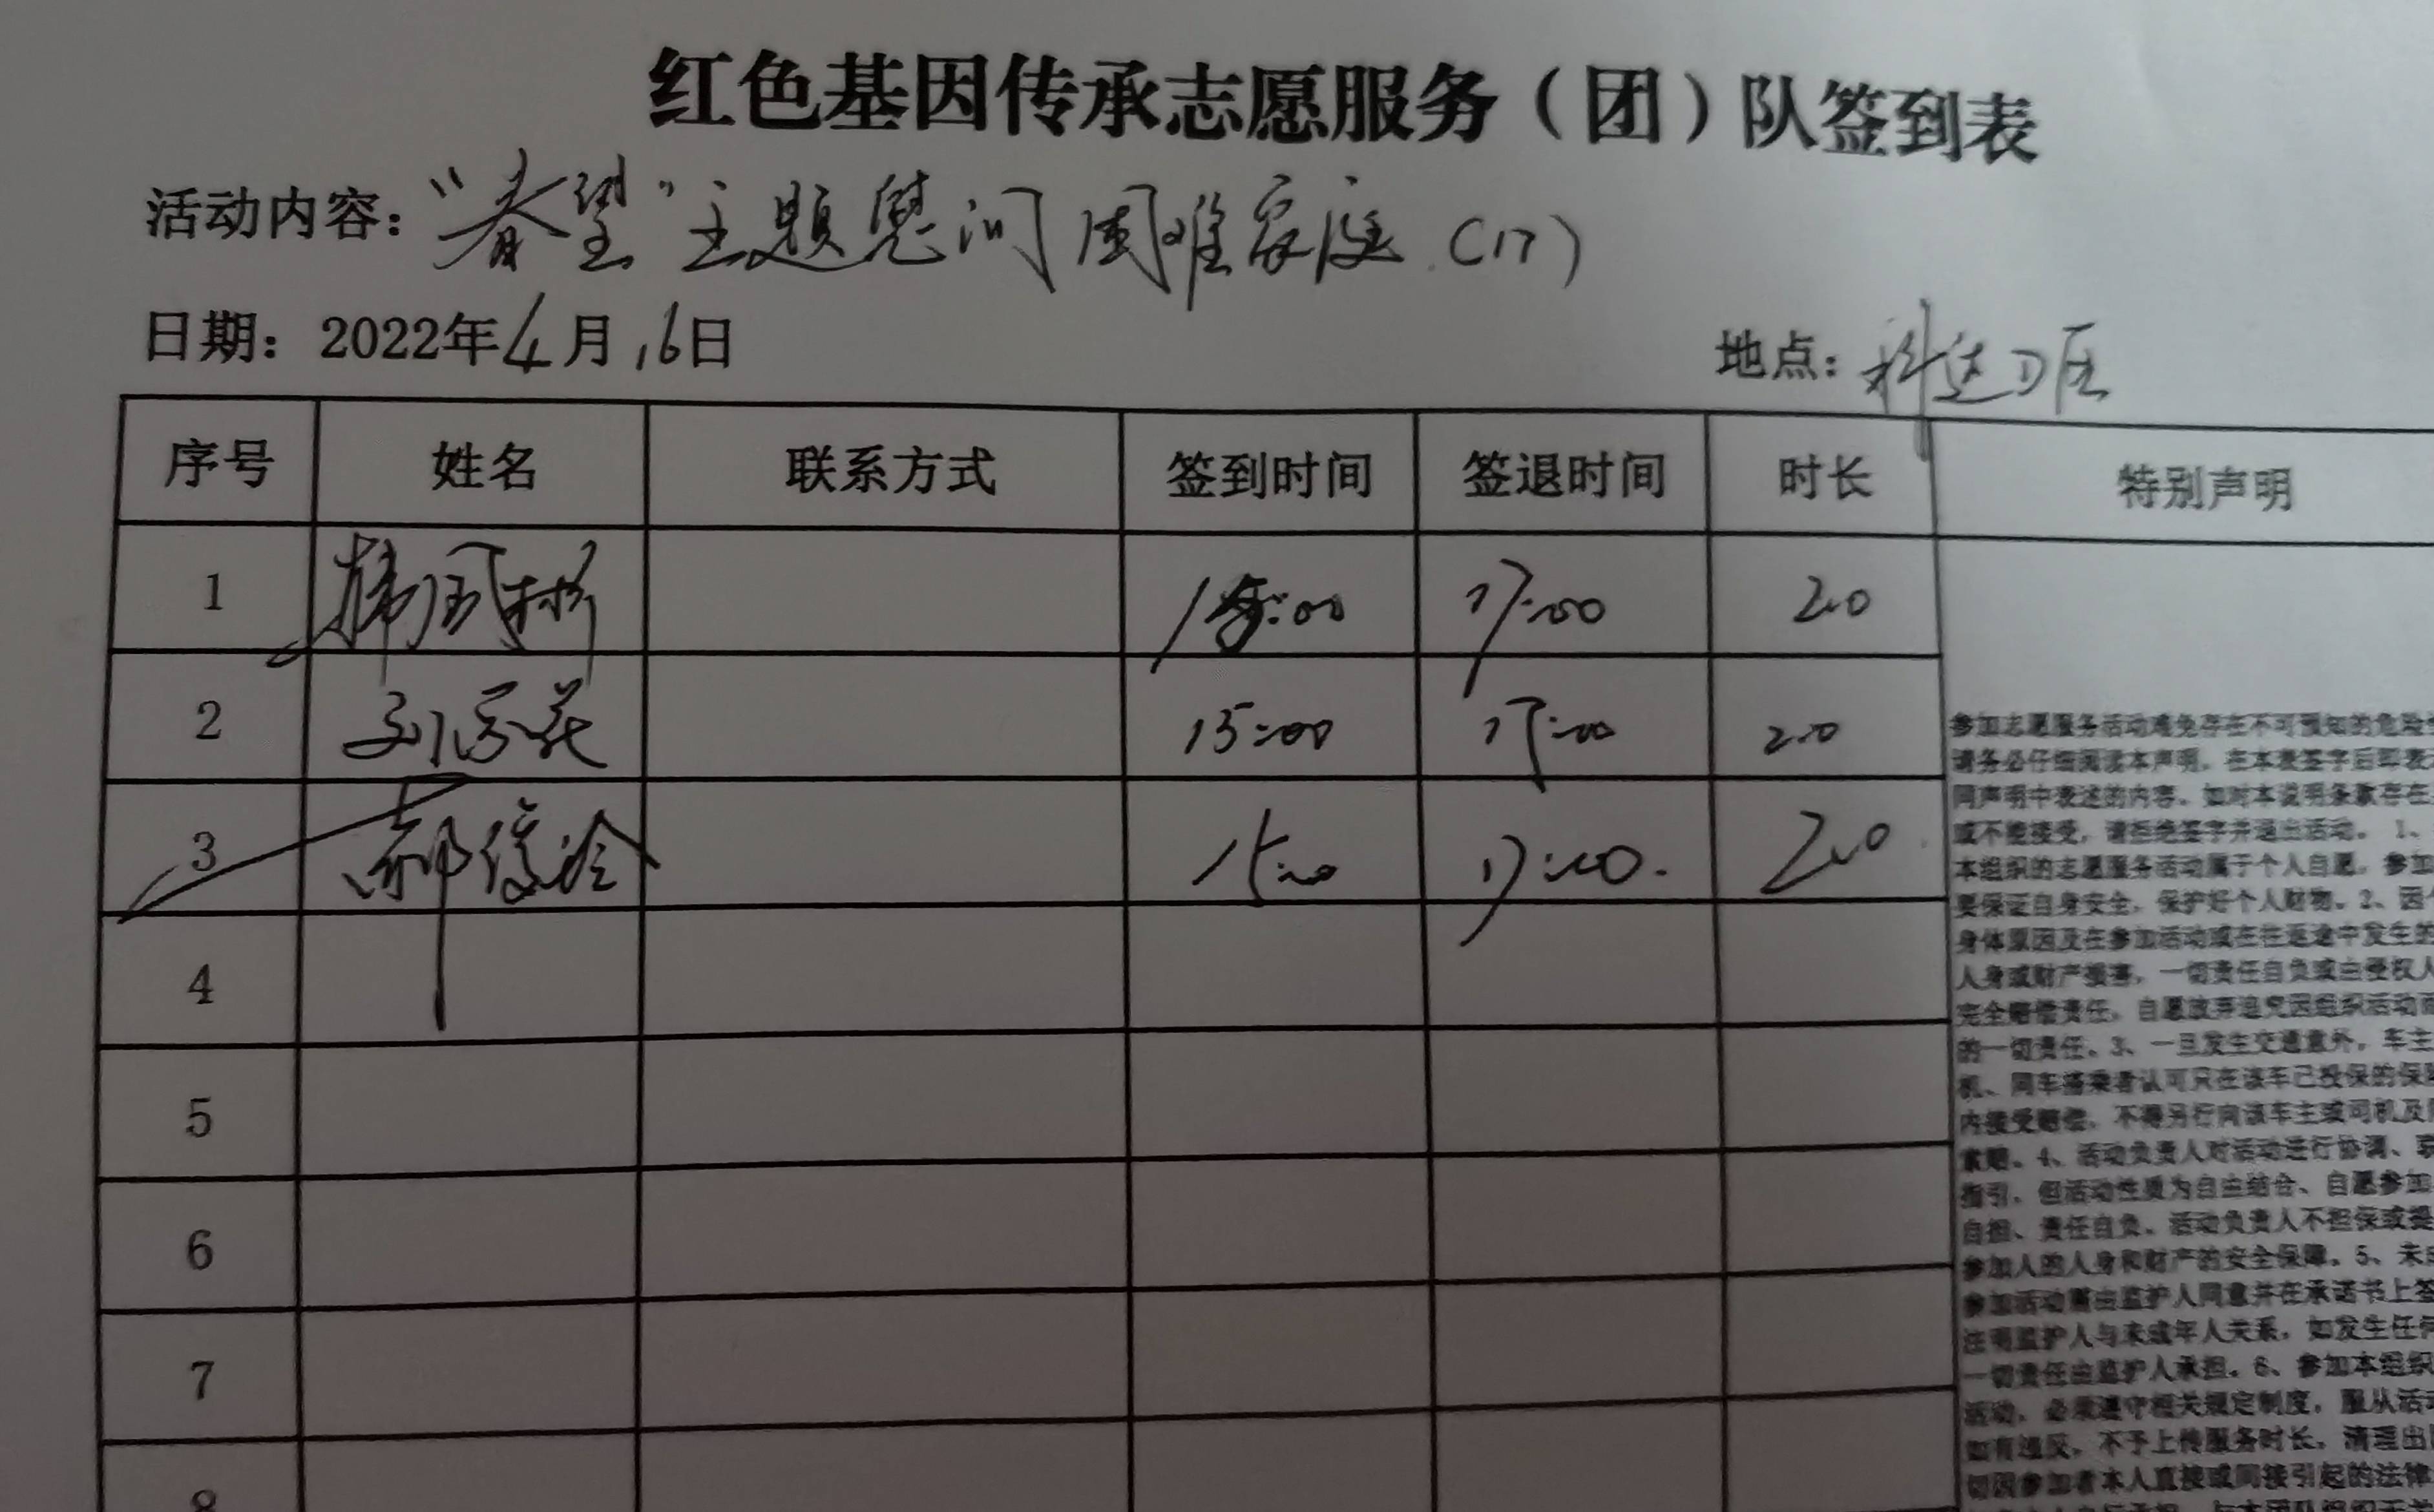 红色基因传承志愿服务（团）队签到表
活动内容：“春望”主题慰问困难家庭.（17）
日期：2022年4月16日
地点：科达
序号 姓名 联系方式 签到时间 签退时间 时长 特别声明
1 15:00 17:00 2.0
2 刘 15:00 17:00 2.0
3 郝俊玲 15:00 17:00. 2.0
4
5
6
7
8
参加志愿服务活动难免存在不可预知的危险
请务必仔细阅读本声明，在本表签字后即表
同声明中表述的内容。如对本说明条款存在
或不能接受，请拒绝签字并退出活动。1、
本组织的志愿服务活动属于个人自愿，参加
要保证自身安全，保护好个人财物。2、因
身体原因及在参加活动或在往返途中发生的
人身或财产损害，一切责任自负或由受权人
完全赔偿责任，自愿放弃追究因组织活动
的一切责任。3、一旦发生交通意外，车主
机、同车搭乘者认可只在该车已投保的保
内接受赔偿，不得另行向该车主或司机及
索赔。4、活动负责人对活动进行协调、联
指引，但活动性质为自由结合、自愿参加
自担、责任自负，活动负责人不担保或提
参加人的人身和财产的安全保障。5、未
参加活动需由监护人同意并在承诺书上签
注明监护人与未成年人关系，如发生任何
一切责任由监护人承担。6、参加本组织
活动，必须遵守相关规定制度，服从活
如有违反，不予上传服务时长，清理出
切因参加者本人直接或间接引起的法律